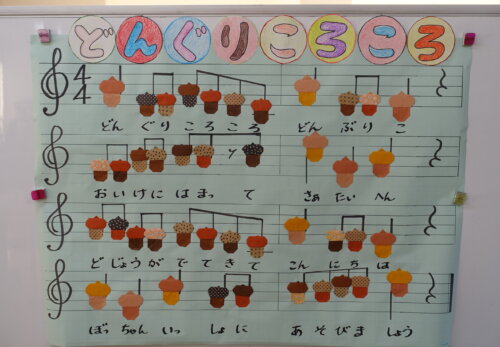 どんぐりころころ
4
4
どん ぐり ころ ころ どん ぶり こ
おいけに はまっ て さあ たい へん
ど じょう が でて きて こん にち は
ぼっ ちゃん いっ しょ に あ そび ま しょう